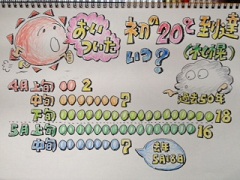 おいついた
初の20℃到達
いつ?
(水切亮)
過去50年
4月上旬 2
中旬 ?
下旬 18
5月上旬 16
中旬 ?
去年
5月18日